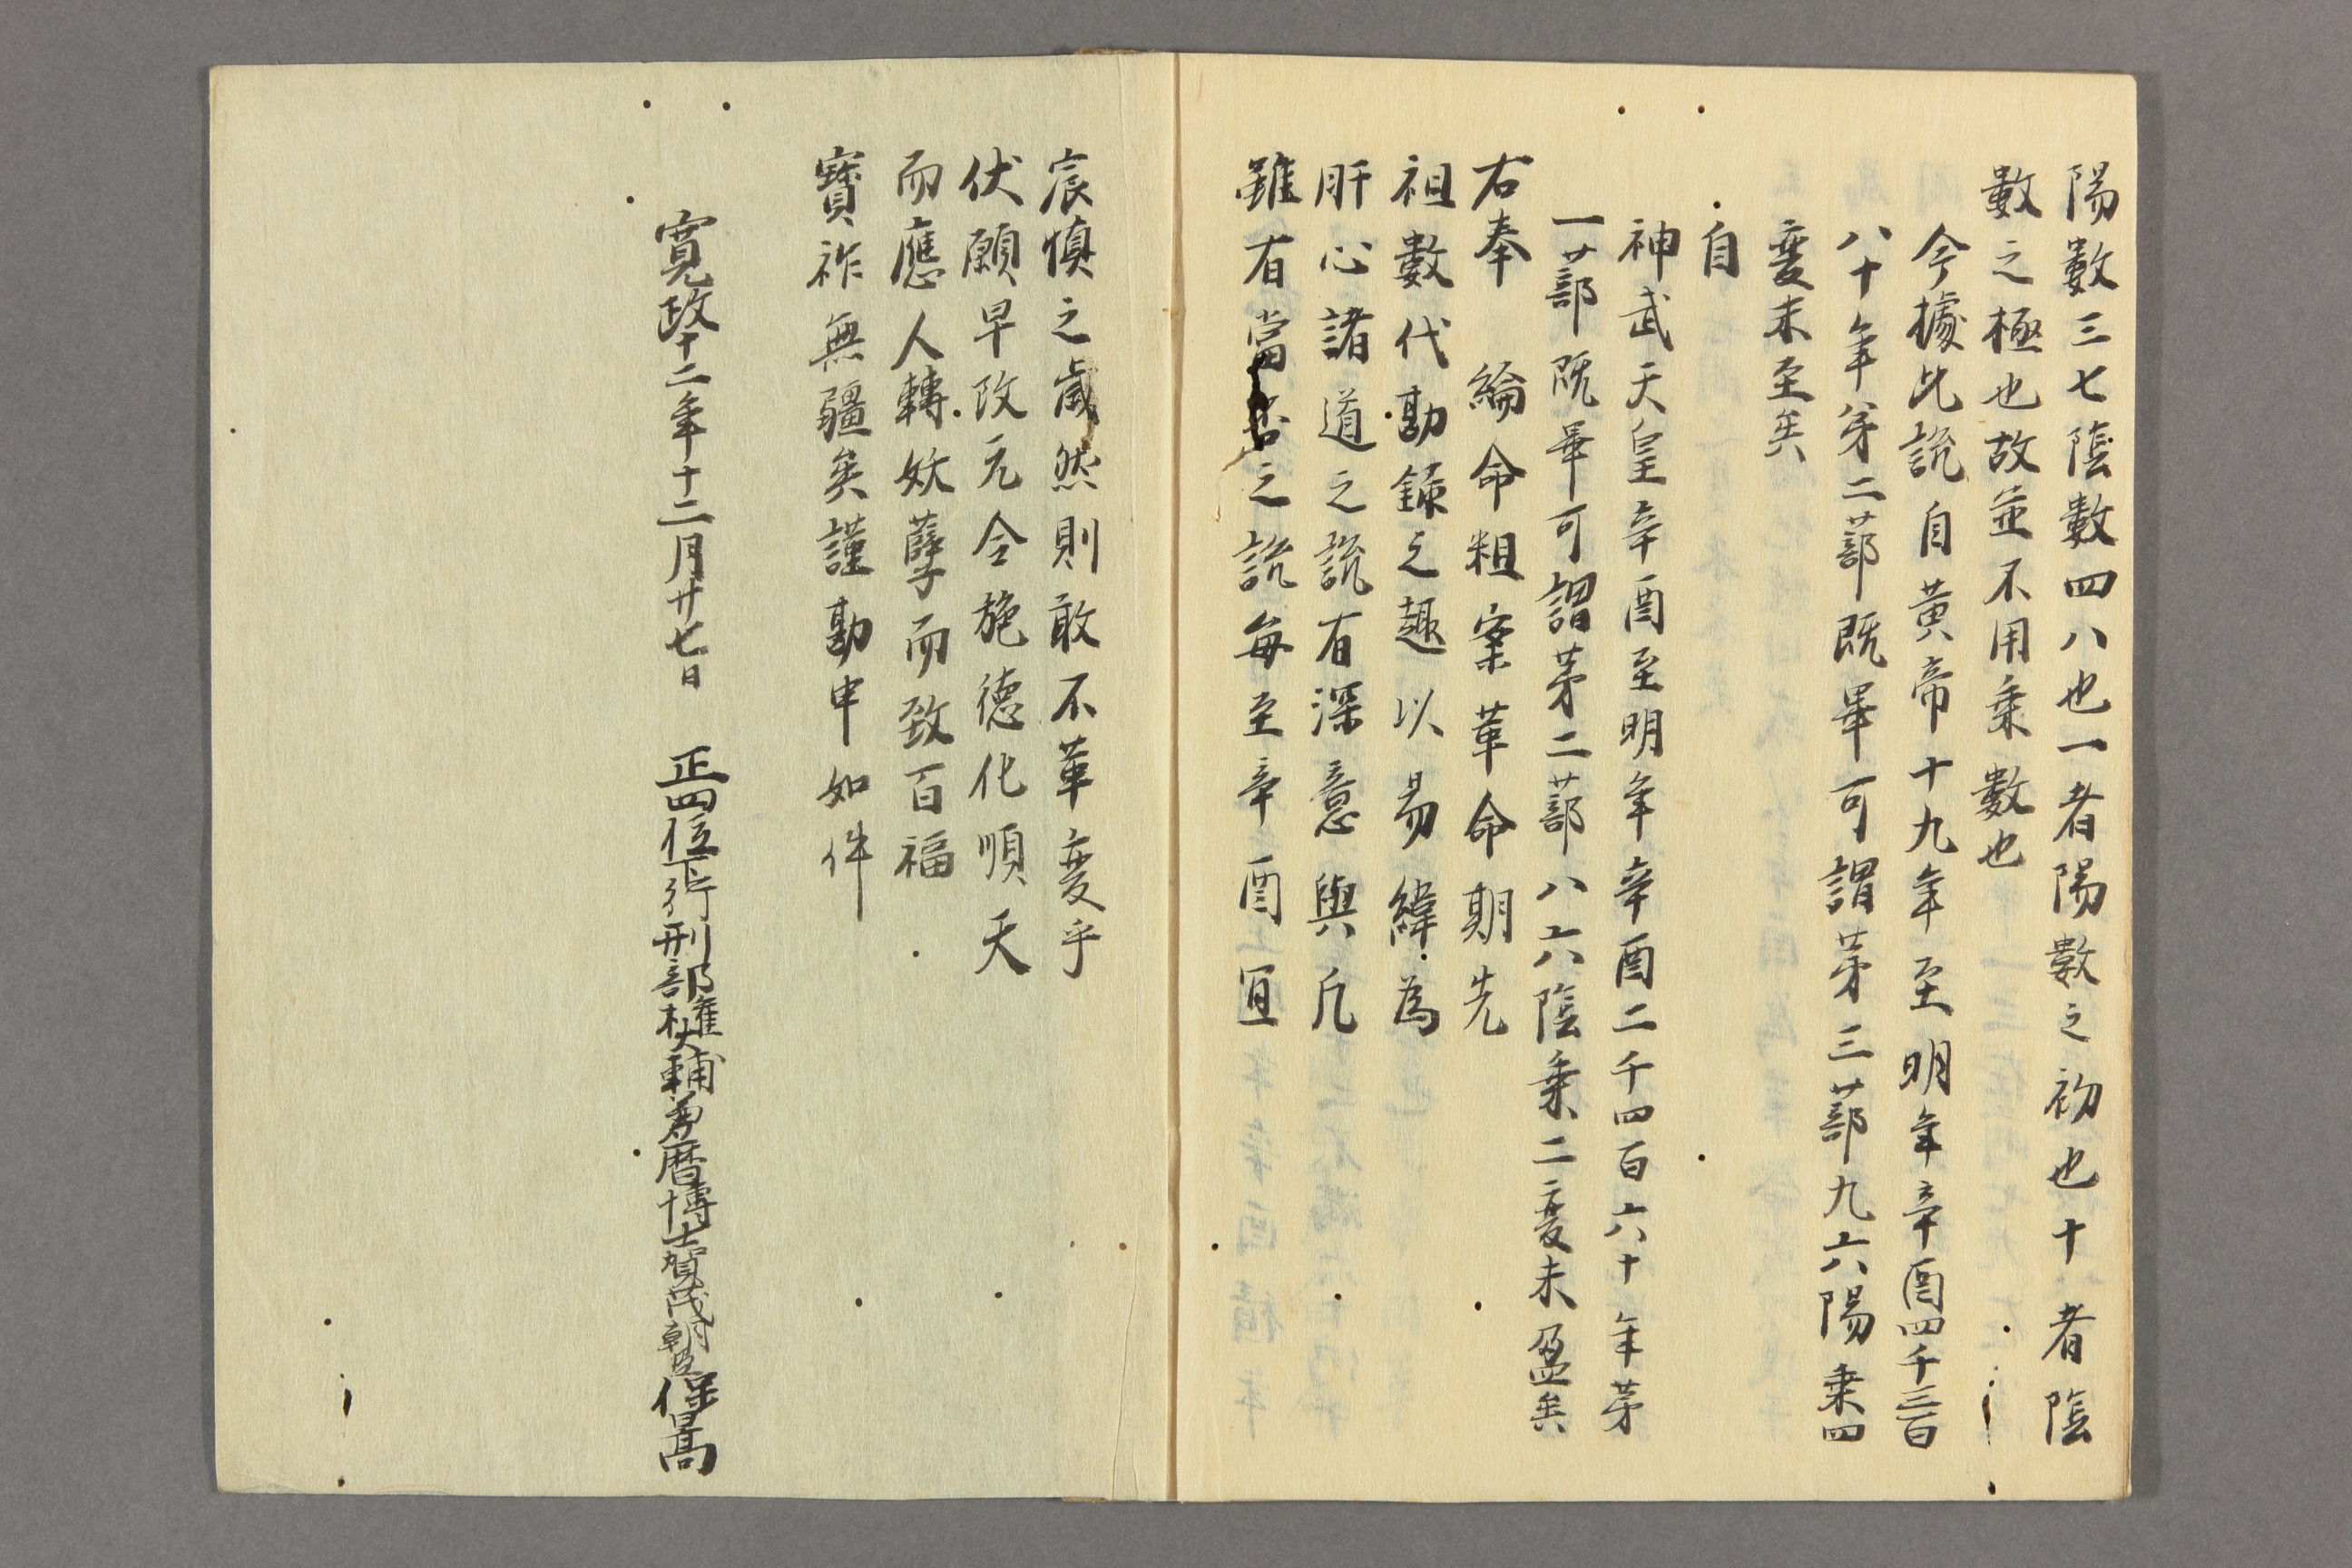 陽數三七陰數四八也一者陽數之初也十者陰
數之極也故並不用乗數也
今據此説自黄帝十九年至明年辛酉四千三百
八十年第二蔀既畢可謂第三蔀九六陽乗四
變未至矣
自
神武天皇辛酉至明年辛酉二千四百六十年第
一蔀既畢可謂第二蔀八六陰乗二變未盈矣
右奉 綸命粗案革命期先
祖數代勘録之趣以易緯為
肝心諸道之説有深意與凡
雖有當否之説毎至辛酉冝
宸慎之歳然則敢不革變乎
伏願早改元令施德化順天
而應人轉妖孽而致百福
寶祚無疆矣謹勘申如件
寛政十二年十二月廿七日 正四位下行刑部權大輔兼暦博士賀茂朝臣保暠